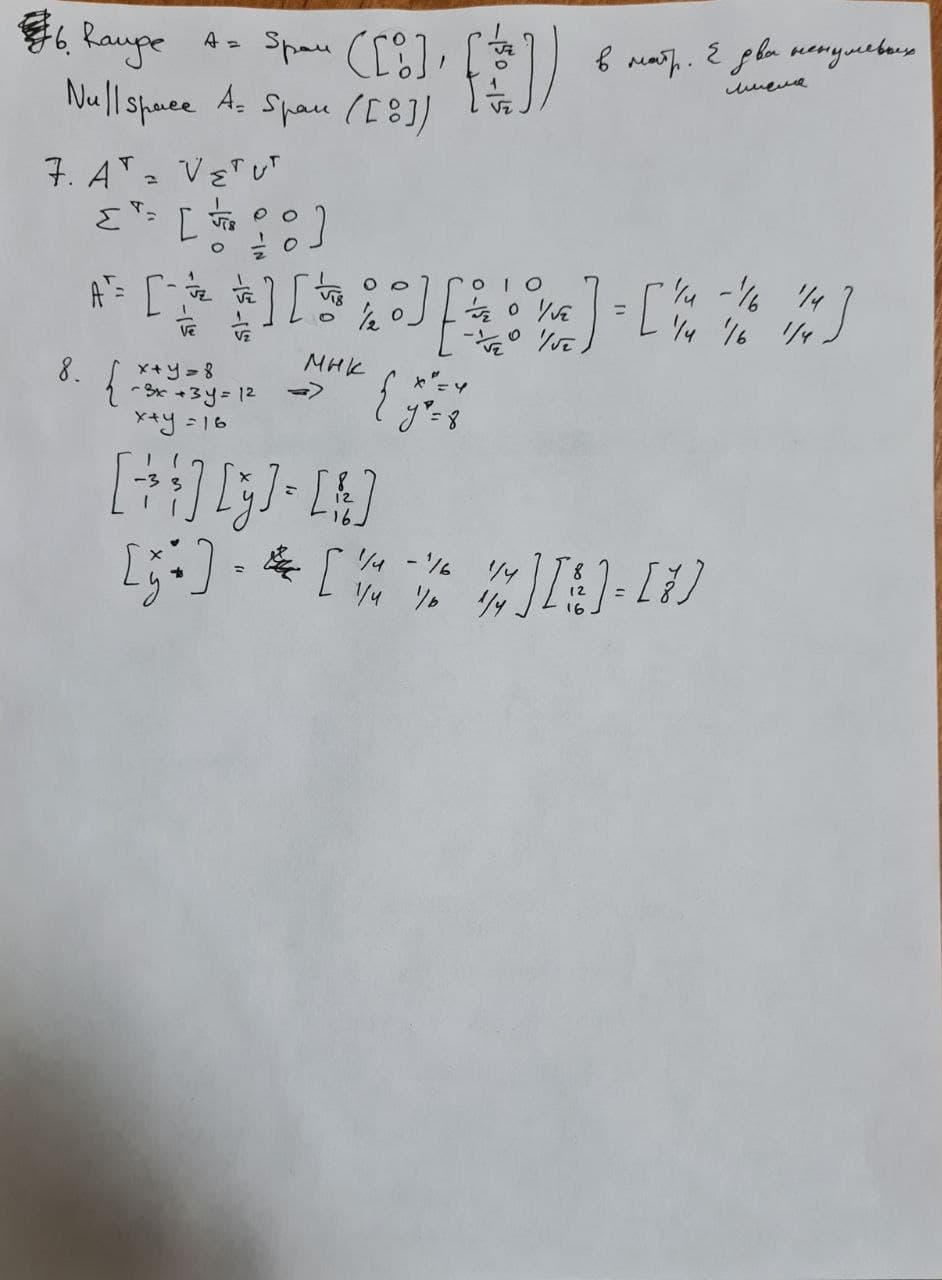 6. Range A = Span ([0 1 0], [1/√2 0 1/√2]) в матр. Σ два ненулевых числа
Nullspace A = Span ([0 0])
7. Aᵀ = V Σᵀ Uᵀ
Σᵀ = [1/√18 0 0; 0 1/2 0]
Aᵀ = [-1/√2 1/√2; 1/√2 1/√2] [1/√18 0 0; 0 1/2 0] [0 1 0; 1/√2 0 1/√2; -1/√2 0 1/√2] = [1/4 -1/6 1/4; 1/4 1/6 1/4]
8. { x+y=8; -3x+3y=12; x+y=16 МНК => { x*=4; y*=8
[1 1; -3 3; 1 1] [x; y] = [8; 12; 16]
[x*; y*] = [1/4 -1/6 1/4; 1/4 1/6 1/4] [8; 12; 16] = [4; 8]